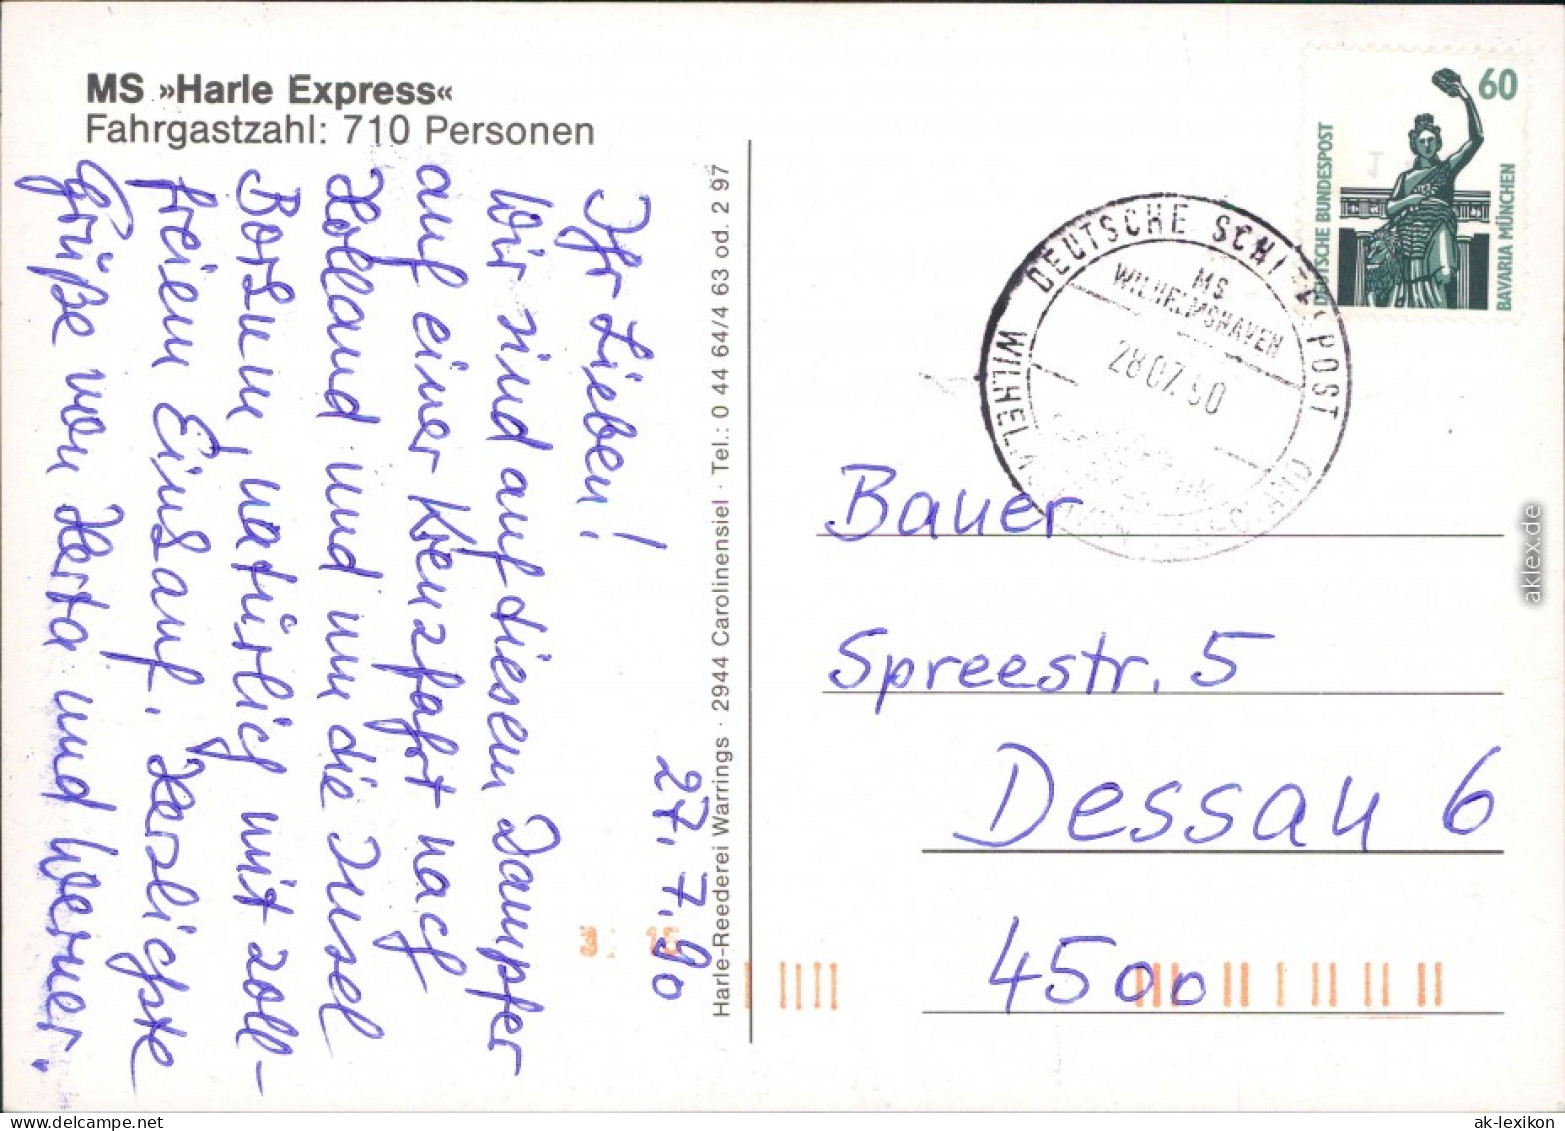 MS »Harle Express«
Fahrgastzahl: 710 Personen
27.7.90
Ihr Lieben!
Wir sind auf diesem Dampfer
auf einer Kreuzfahrt nach
Holland und um die Insel
Borkum, natürlich mit zoll-
freiem Einkauf. Herzlichste
Grüße von Herta und Werner.
Harle-Reederei Warrings · 2944 Carolinensiel · Tel.: 0 44 64/4 63 od. 2 97
60
DEUTSCHE BUNDESPOST
BAVARIA MÜNCHEN
DEUTSCHE SCHIFFSPOST
MS
WILHELMSHAVEN
28.07.90
Bauer
Spreestr. 5
Dessau 6
4500
aklex.de
ak-lexikon